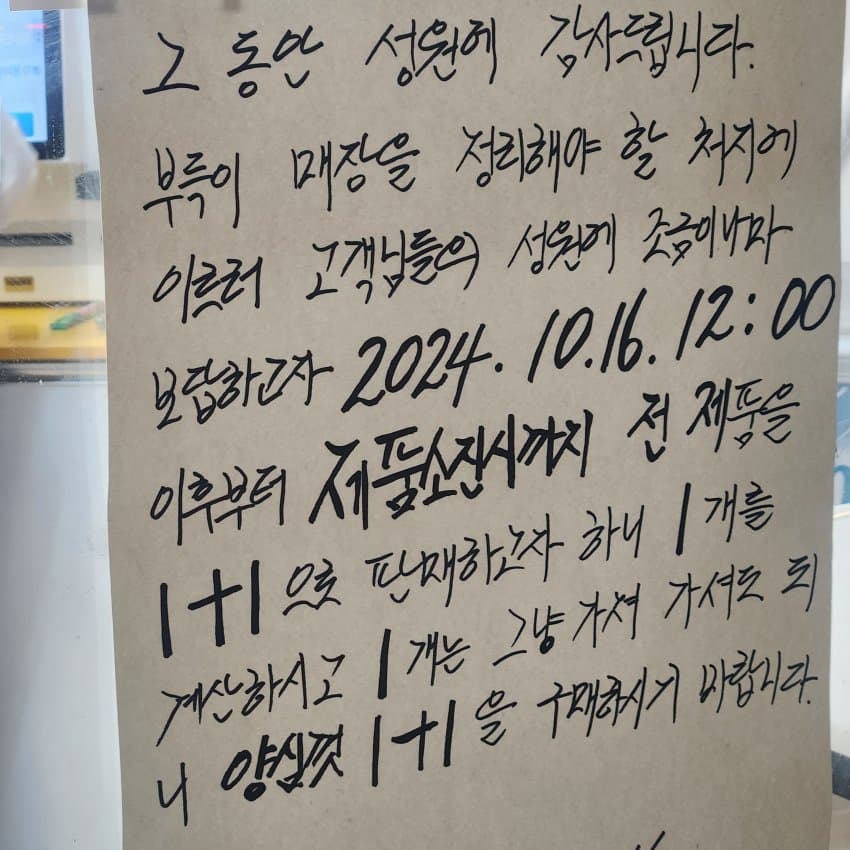 그 동안 성원에 감사드립니다.
부득이 매장을 정리해야 할 처지에
이르러 고객님들의 성원에 조금이나마
보답하고자 2024. 10.16. 12:00
이후부터 제품소진시까지 전 제품을
1+1으로 판매하고자 하니 1개를
계산하시고 1개는 그냥 가져 가셔도 되
니 양심껏 1+1을 구매하시기 바랍니다.